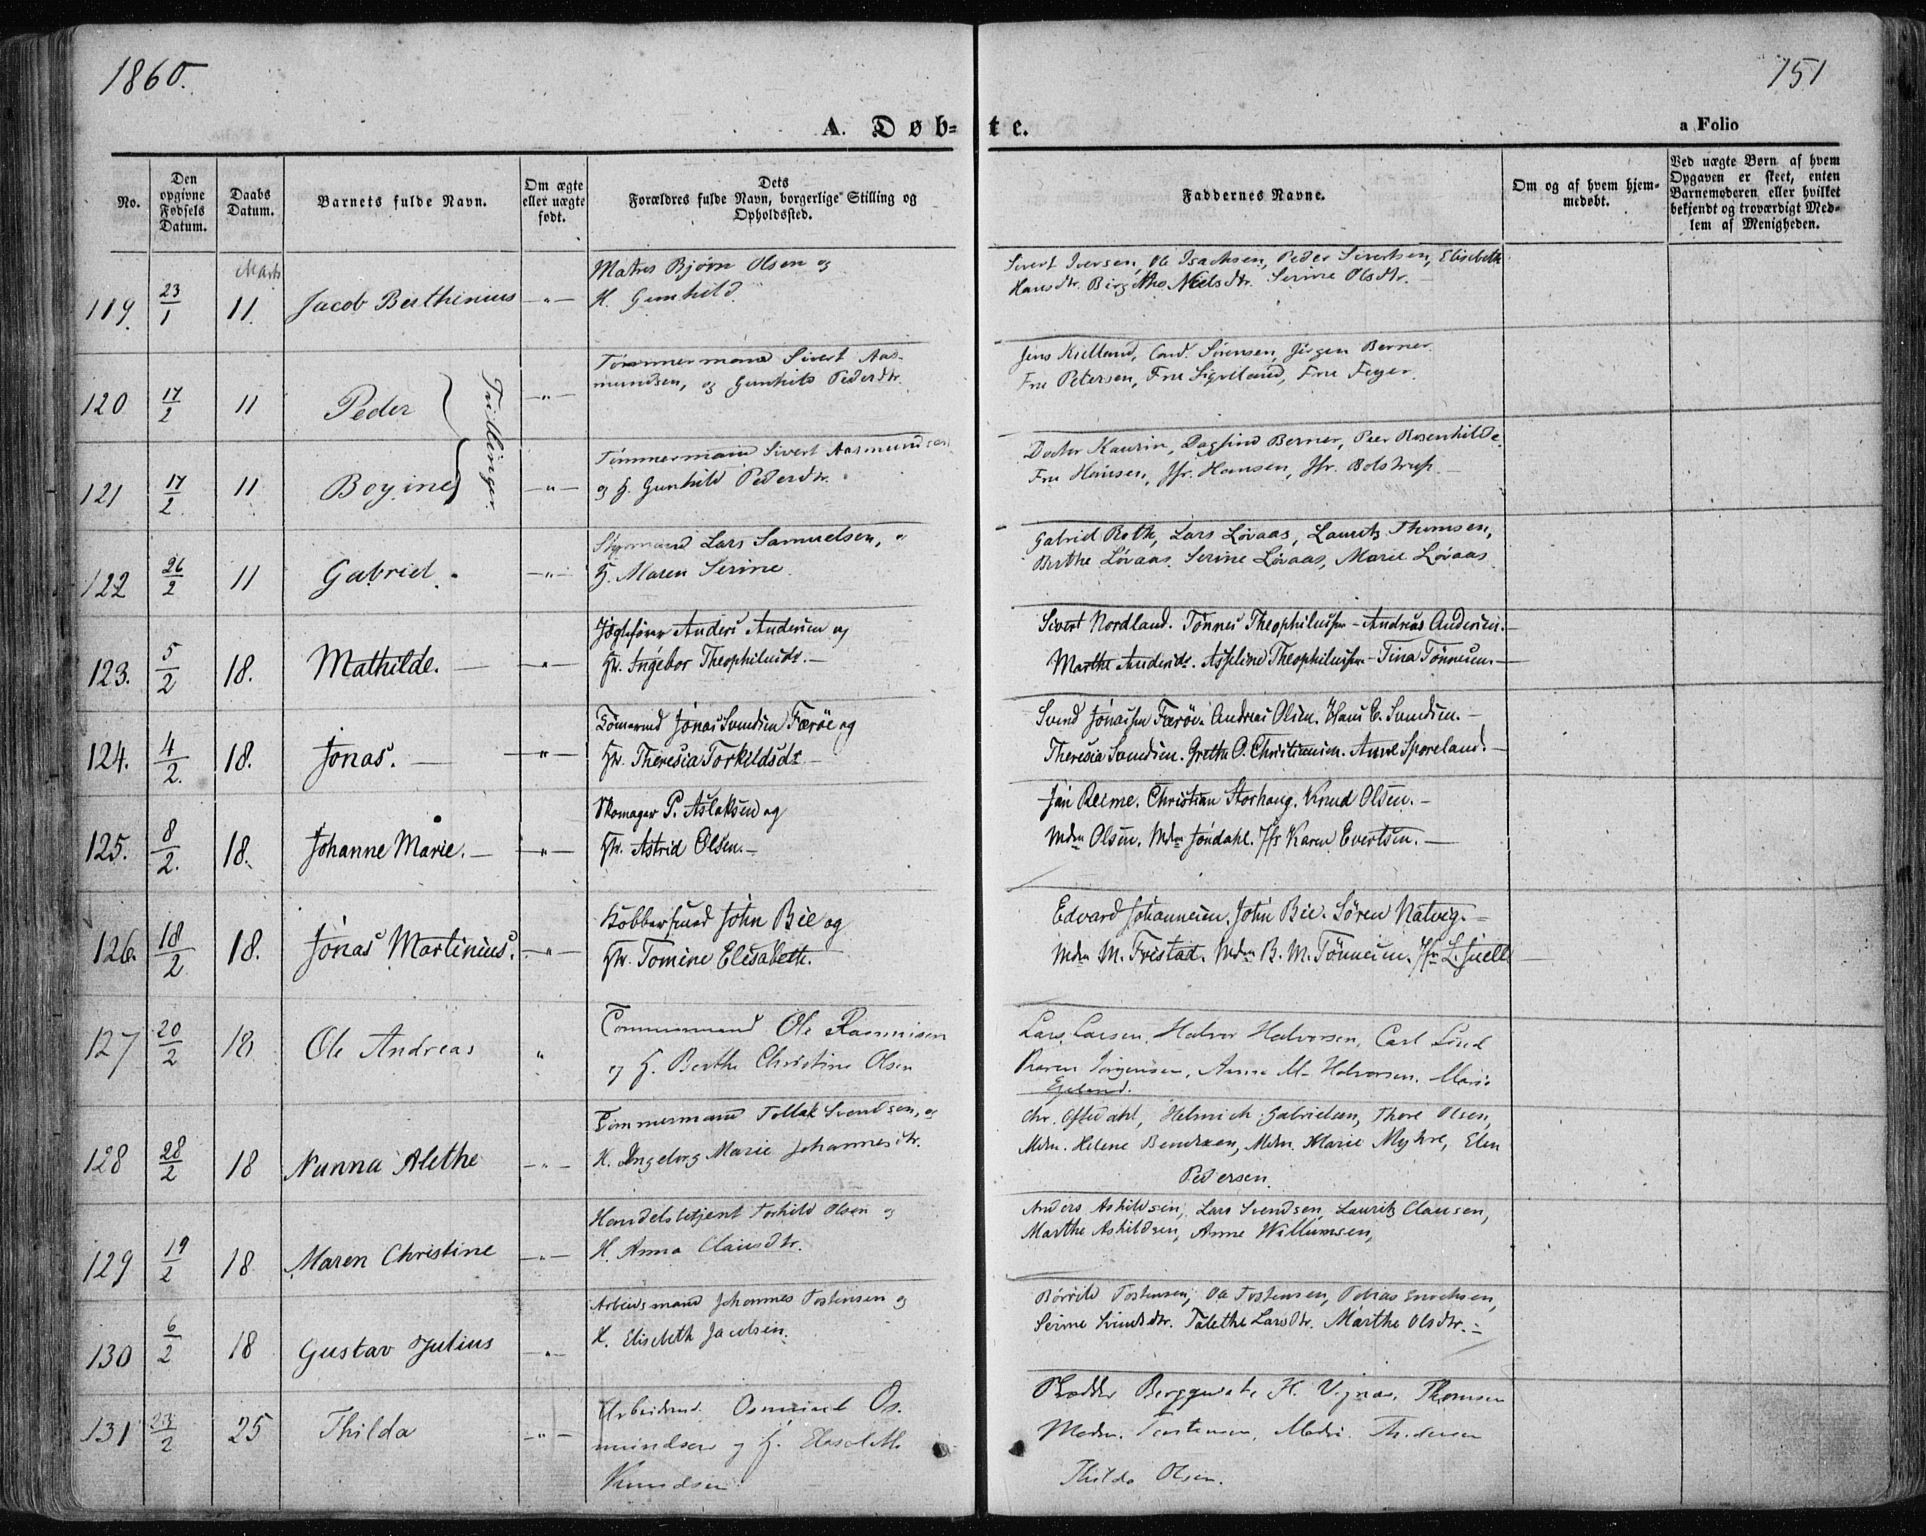 1860.
151
A. Døb-
te.
a Folio
No.
Den opgivne Fødsels Datum.
Daabs Datum.
Barnets fulde Navn.
Om ægte eller uægte født.
Dets Forældres fulde Navn, borgerlige Stilling og Opholdssted.
Faddernes Navne.
Om og af hvem hjemmedøbt.
Ved uægte Børn af hvem Opgaven er skeet, enten Barnemoderen eller hvilket bekjendt og troværdigt Medlem af Menigheden.
Marts
119. 23/1 11. Jacob Berthinius -"-
Matros Bjørn Olsen og
H. Gunhild.
Sivert Iversen, Ole Isachsen, Peder Sivertsen, Elisebeth
Hansdtr. Birgitthe Nielsdtr. Serine Olsdtr.
120 17/2 11 Peder -"-
Trillinger.
Tømmermand Sivert Aas-
mundsen, og Gunhild Pedersdtr.
Jens Kielland, Cand. Sørensen, Jørgen Berner
Fru Petersen, Fru Sigveland, Fru Feyer.
121 17/2 11 Boyine -"-
Tømmermand Sivert Aasmundsen
og H. Gunhild Pedersdtr.
Doctor Kaurin, Dagfind Berner, Peer Rosenkilde.
Fru Hansen, Jfr. Hansen, Jfr. Bolstrup
122 26/2 11 Gabriel. -"-
Styrmand Lars Samuelsen, o
H. Maren Serine.
Gabriel Roth, Lars Løvaas, Laurits Thomsen,
Berthe Løvaas, Serine Løvaas, Marie Løvaas
123. 5/2 18. Mathilde. -"-
Jægtefører Anders Andersen og
Hr. Ingebor Theophilusdr.
Sivert Nordland. Tönnes Theophilussen - Andreas Andersen.
Marthe Andersdr. Asseline Theophilussen - Tina Tönnesen.
124. 4/2. 18. Jonas. -"-
Tömermd Jonas Svendsen Færöe og
Hr. Theresia Torkildsdr
Svend Jonassen Færöe. Andreas Olsen. Hans C. Svendsen.
Theresia Svendsen. Gretha O. Christiansen. Anne Sporeland.
125. 8/2. 18. Johanne Marie. -"-
Skomager P. Aslaksen og
Hr. Astrid Olsen.
Jan Reime. Christian Storhaug. Knud Olsen.
Mdm Olsen. Mdm Jondahl. Jfr Karen Evertsen.
126. 18/2 18. Jonas Martinius. -"-
Kobbersmed John Bie og
Hr. Tomine Elisabeth.
Edvard Johannesen. John Bie. Sören Natvig.
Mdm M. Fristad. Mdm B. M. Tönnesen. Jfr L. Juell
127 20/2 18 Ole Andreas "
Ole Rasmusen
og H. Berthe Christine Olsen
Lars Larsen, Halvor Halvorsen, Carl Lund
Karen Jørgensen, Anne M. Halvorsen. Marie
Egeland.
128 28/2 18 Nanna Alethe -"-
Tømmermand Tollak Svendsen, og
H. Ingeborg Marie Johannesdtr.
Chr. Oftedahl, Helmich Gabrielsen, Thore Olsen,
Mdm. Helene Bendixen, Mdm. Marie Myhre, Elen
Pedersen.
129 19/2 18 Maren Christine -"-
Handelsbetjent Torkild Olsen og
H. Anna Clausdtr.
Anders Askildsen, Lars Svendsen, Lauritz Clausen,
Marthe Askildsen, Anne Willumsen,
130 6/2 18 Gustav Julius -"-
Arbeidsmand Johannes Tostensen og
H. Elisebeth Jacobsen.
Børrild Tostensen, Ole Tostensen, Tobias Enochsen,
Serine Svendsdtr. Talethe Larsdtr. Marthe Olsdtr.
131 23/2 25 Thilda -"-
Arbeidsmd. Osmund Os-
mundsen og H. Elisabeth
Knudsen
Berggvist H. Thomsen
Madm. Torstensen, Madm.
Thilda Olsen.